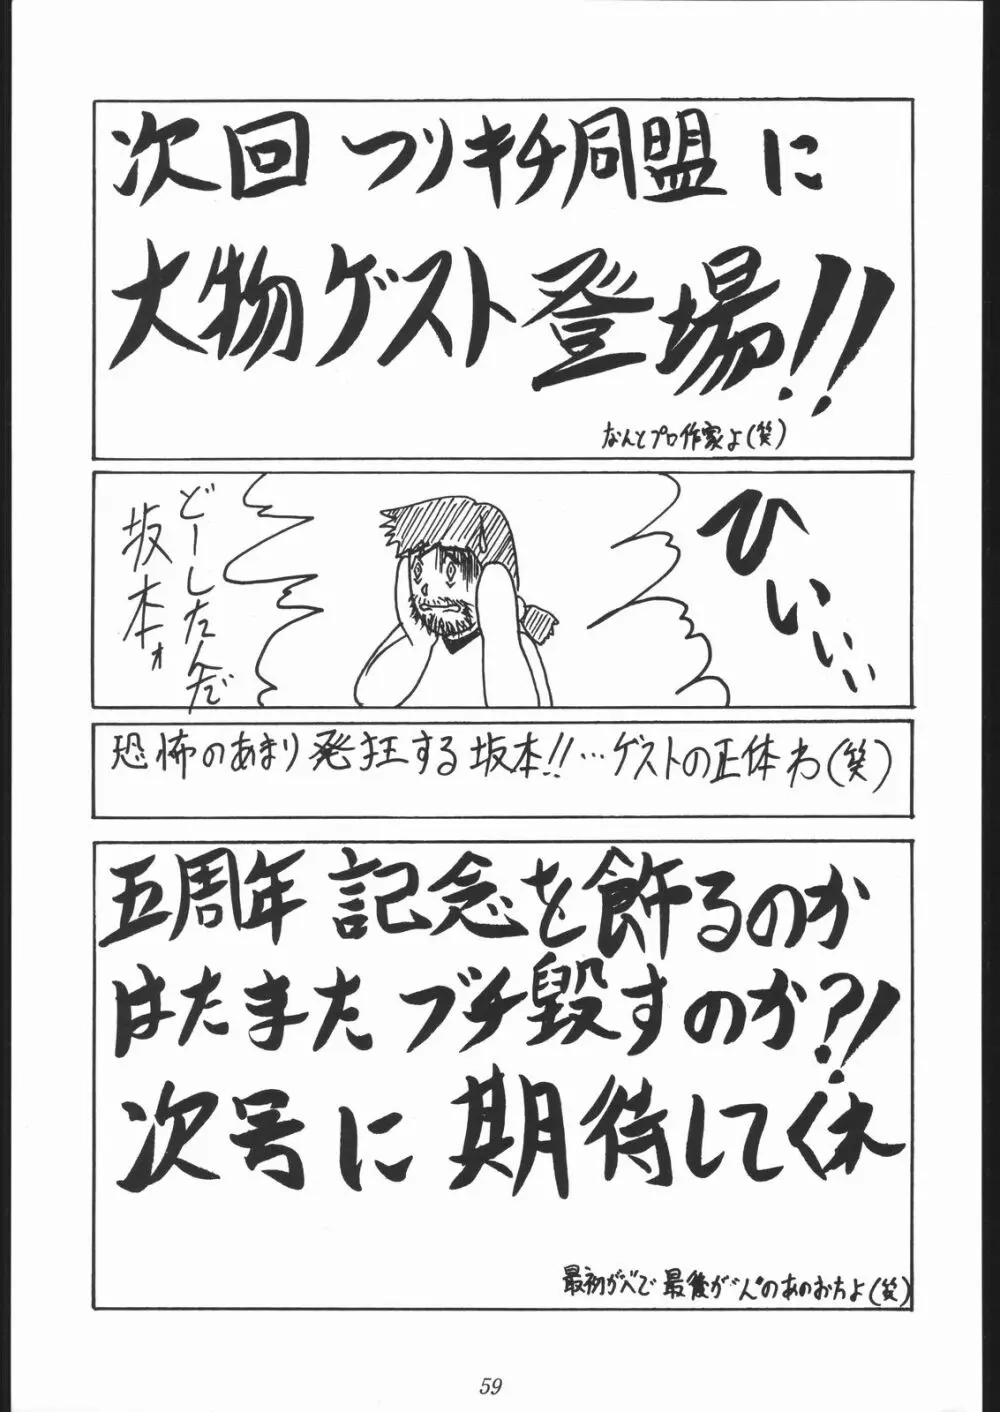 次回 つりキチ同盟 に
大物ゲスト登場!!
なんとプロ作家よ(笑)
ひいいぃぃ
どーしたんだ
坂本ォ
恐怖のあまり発狂する坂本!!…ゲストの正体わ(笑)
五周年記念を飾るのか
はたまたブチ毀すのか?!
次号に期待してくれ
最初が“べ”で最後が“ん”のあのおかたよ(笑)
59